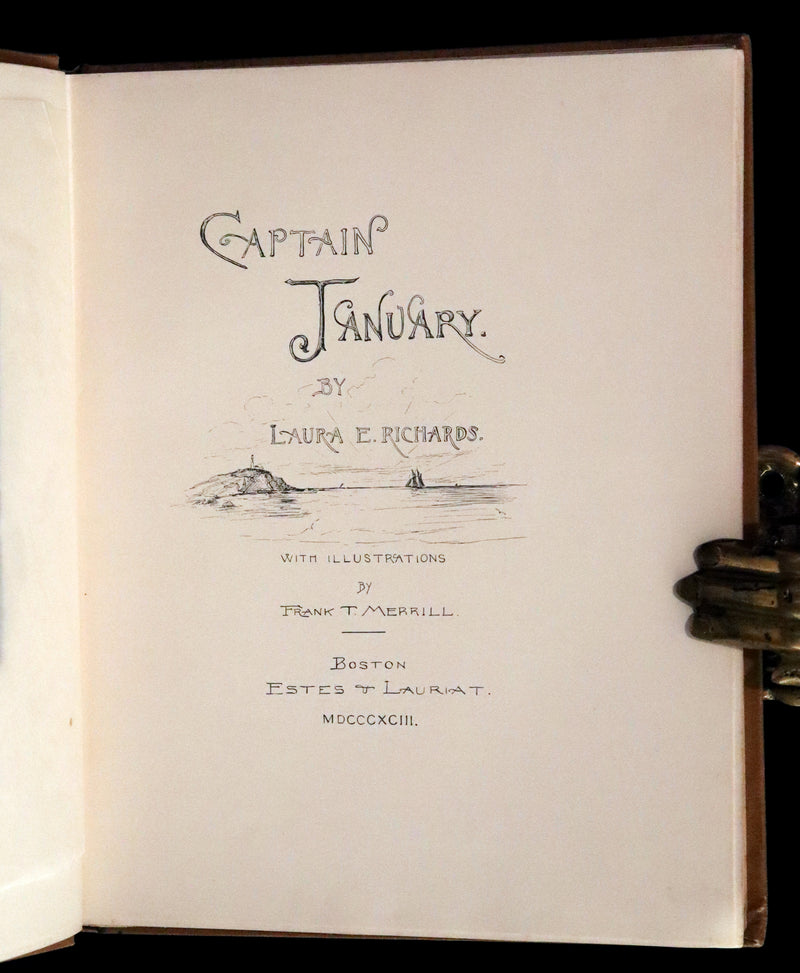 CAPTAIN
JANUARY.
BY
LAURA E. RICHARDS.
WITH ILLUSTRATIONS
BY
FRANK T. MERRILL.
BOSTON
ESTES & LAURIAT.
MDCCCXCIII.